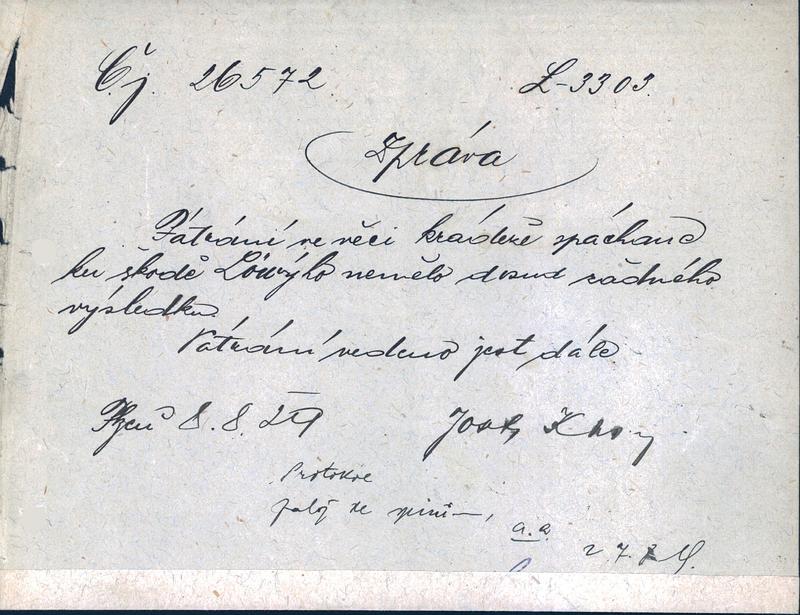 Č.j. 26572 L-3303.
Zpráva
Pátrání ve věci krádeže spáchané
ku škodě Löwyho nemělo dosud žádného
výsledku.
Pátrání vedeno jest dále
Plzeň 8. 8. 29
Protokol
a.a.
27.